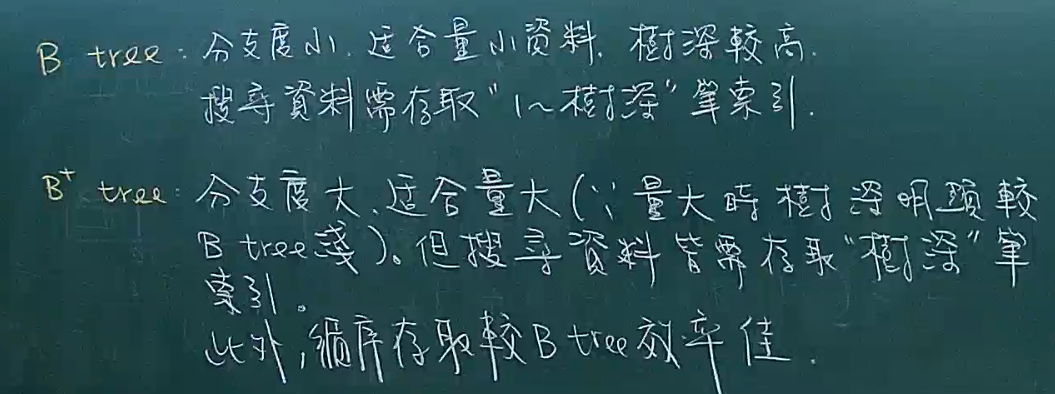 B tree：分支度小、適合量小資料，樹深較高．
搜尋資料需存取"1～樹深"筆索引．
B⁺ tree：分支度大、适合量大(∵量大時樹深明顯較
B tree淺)。但搜尋資料皆需存取"樹深"筆
索引。
此外，循序存取較B tree效率佳．